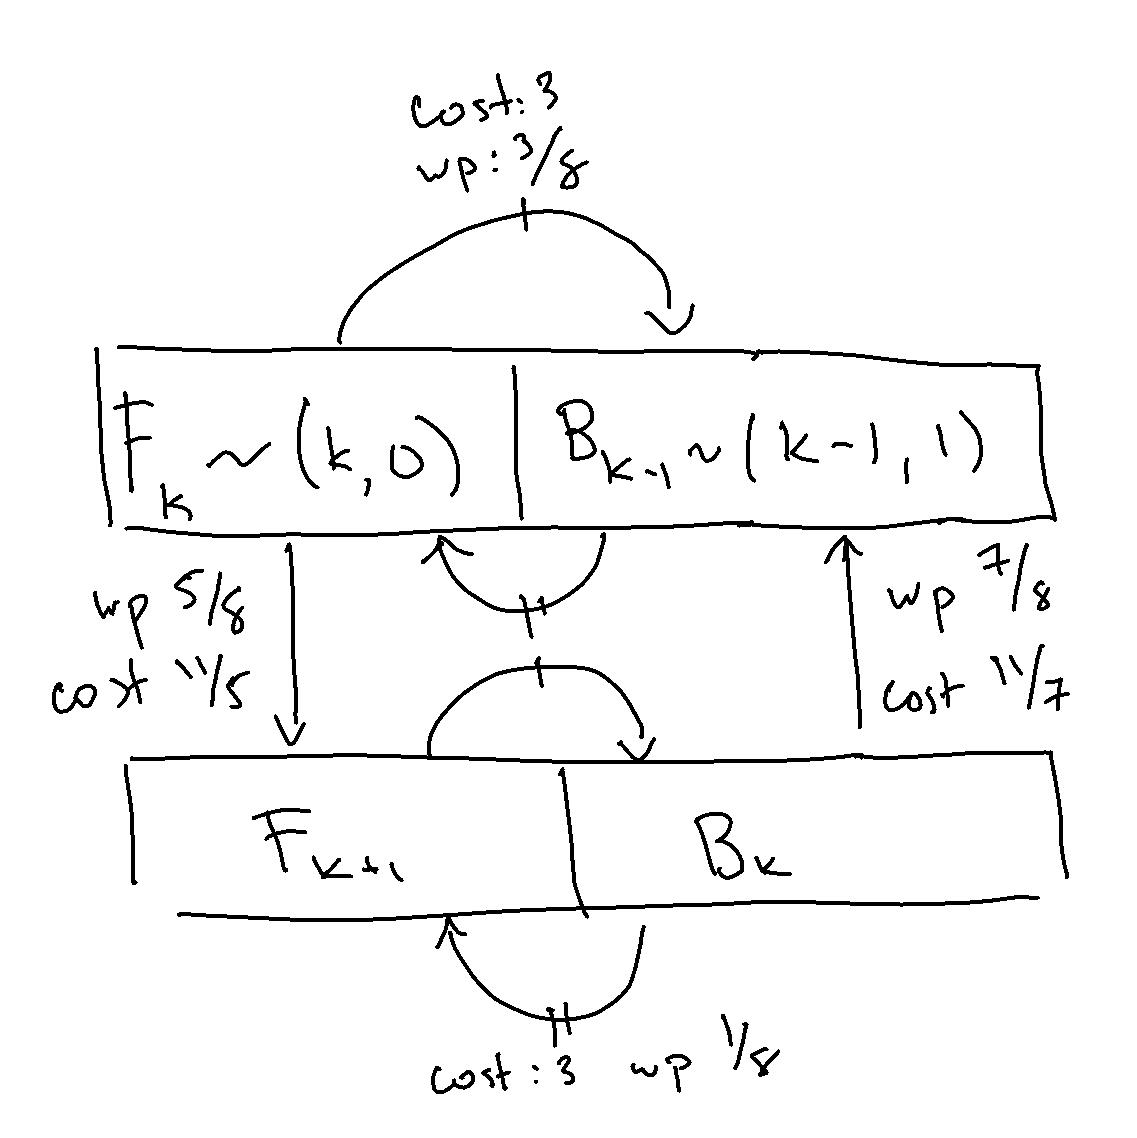 cost: 3
wp: 3/8
F_k ~ (k, 0)
B_{k-1} ~ (k-1, 1)
wp 5/8
cost 11/5
wp 7/8
cost 11/7
F_{k+1}
B_k
cost: 3 wp 1/8